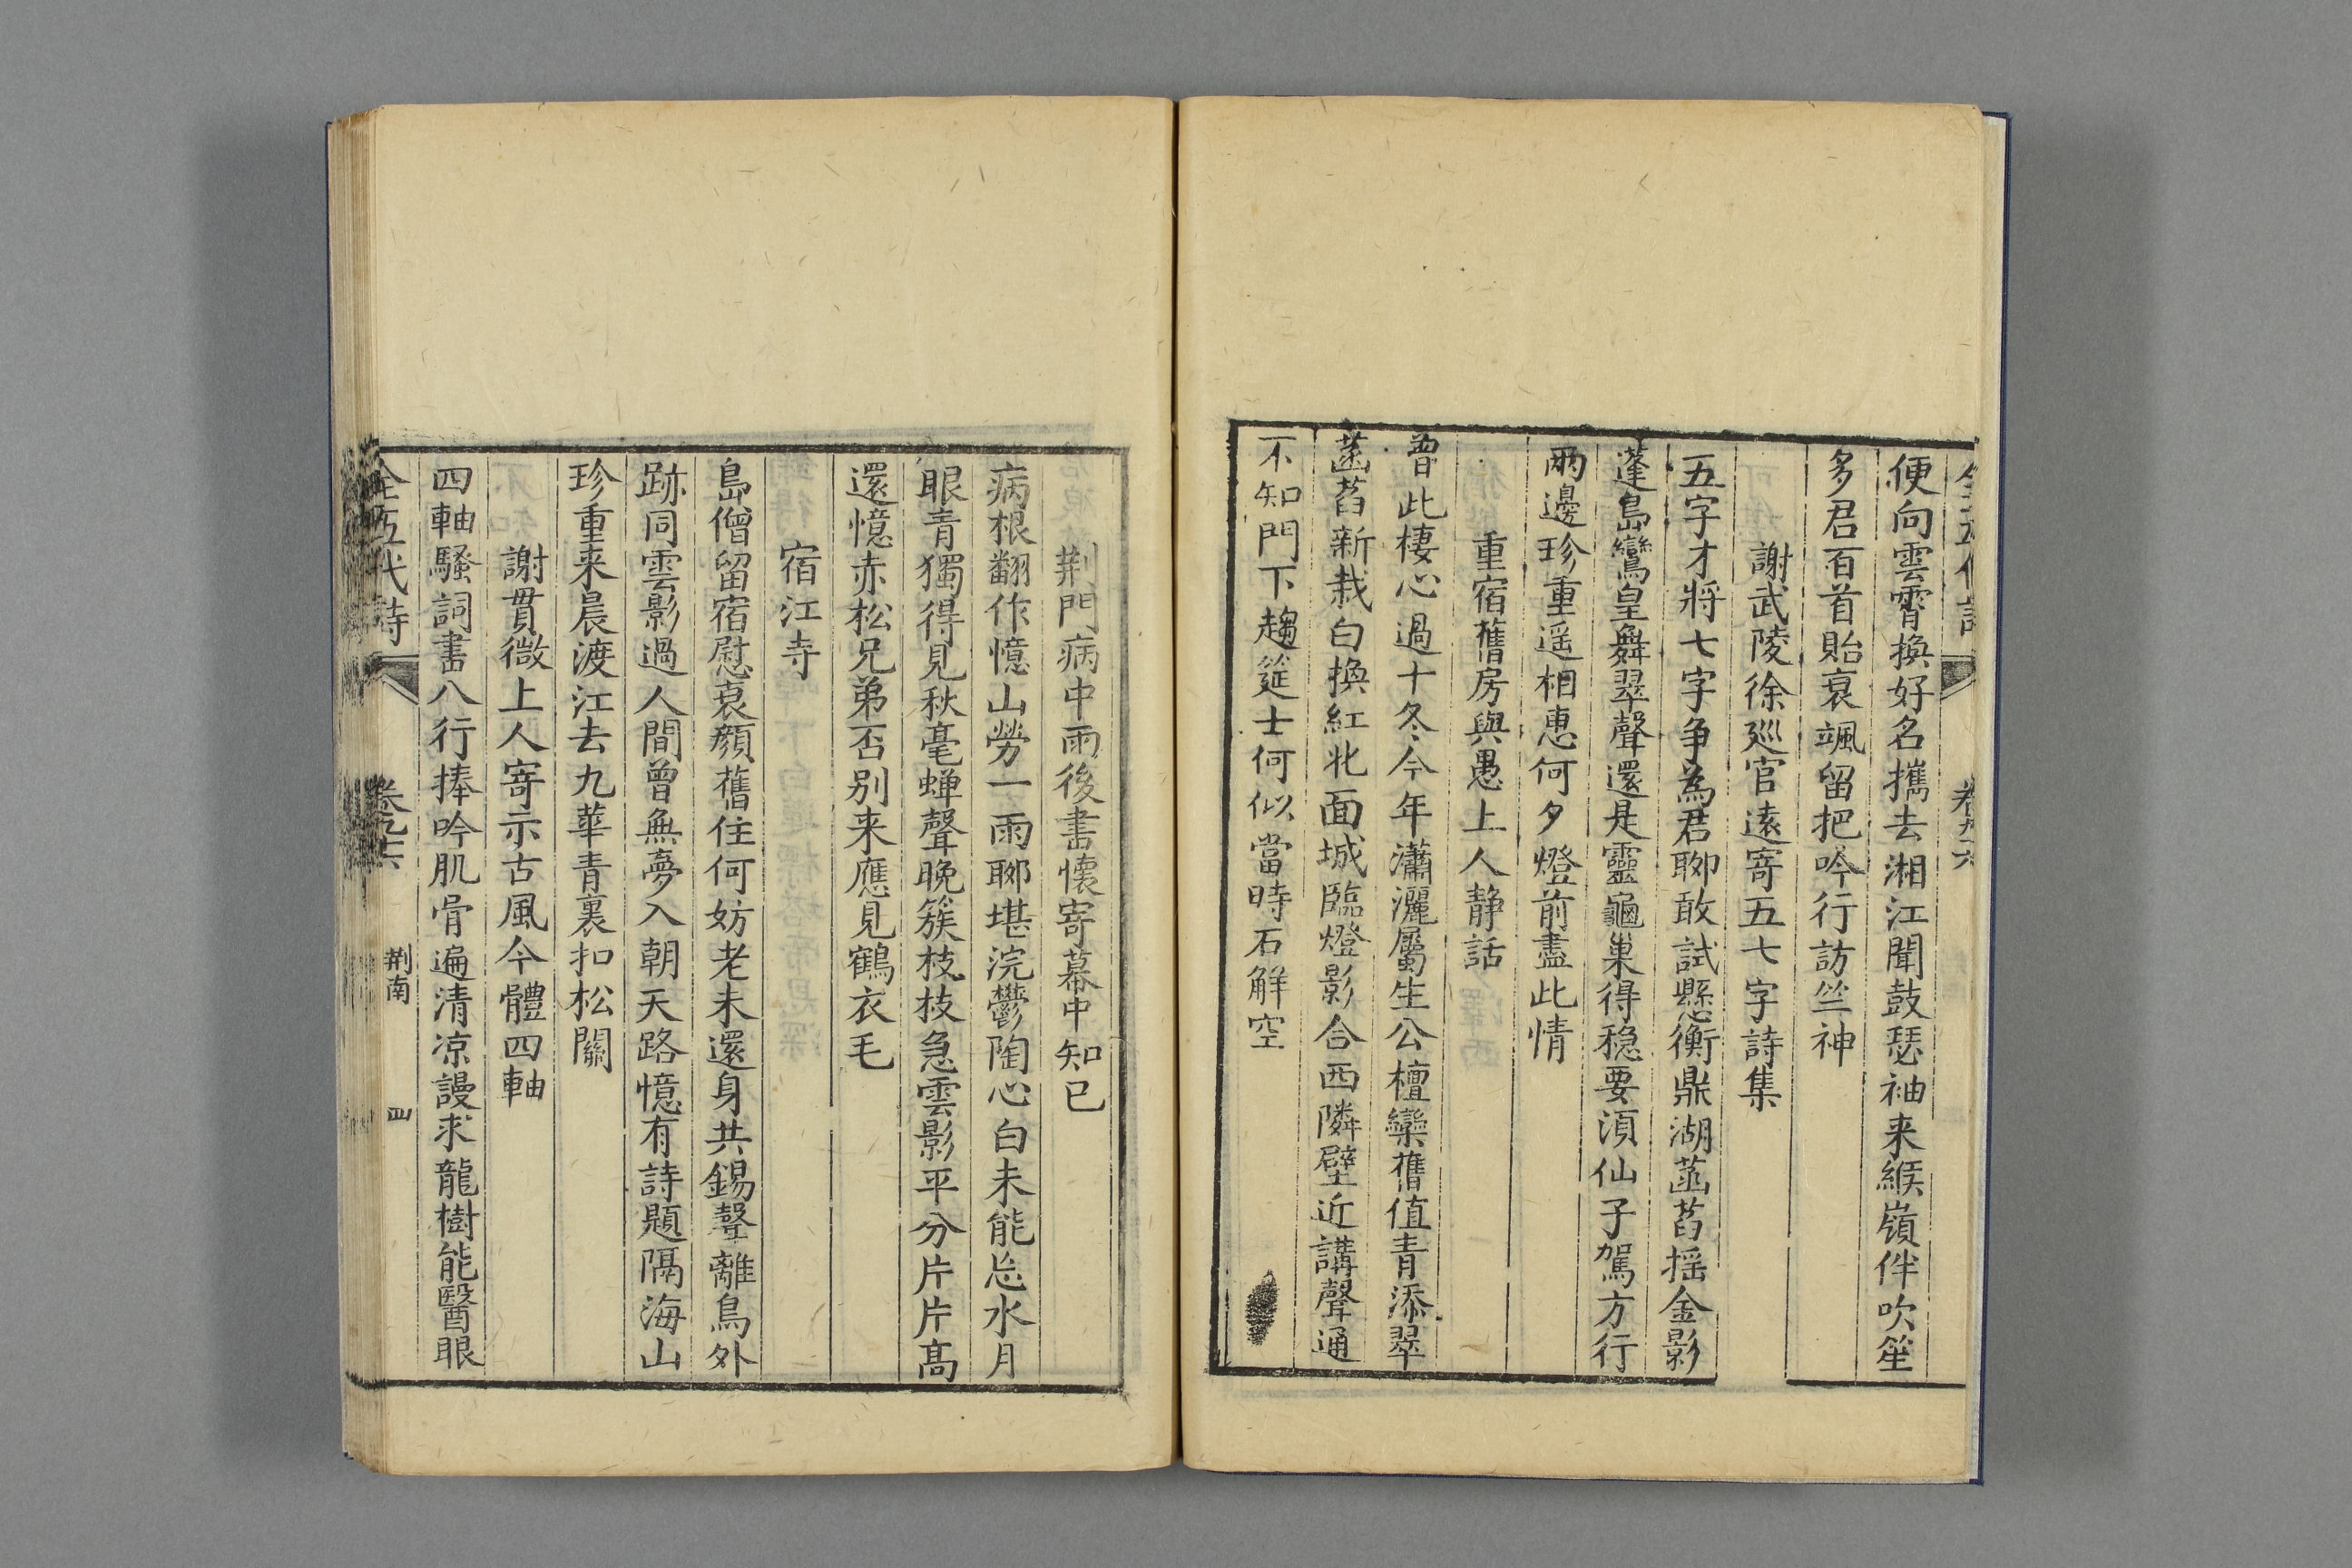 便向雲霄換好名攜去湘江聞鼓瑟袖来緱嶺伴吹笙
多君百首貽衰颯留把吟行訪竺神
謝武陵徐廵官遠寄五七字詩集
五字才將七字争為君聊敢試懸衡鼎湖菡萏摇金影
蓬島鸞皇舞翠聲還是靈龜巢得稳要湏仙子駕方行
兩邊珍重遥相惠何夕燈前盡此情
重宿舊房與愚上人静話
曽此棲心過十冬今年瀟灑屬生公檀欒舊值青添翠
菡萏新栽白換紅北面城臨燈影合西隣壁近講聲通
不知門下趨筵士何似當時石解空
荆門病中雨後書懐寄幕中知已
病根翻作憶山勞一雨聊堪浣鬱陶心白未能忘水月
眼青獨得見秋毫蝉聲晚簇枝枝急雲影平分片片髙
還憶赤松兄弟否别来應見鶴衣毛
宿江寺
島僧留宿慰衰顔舊住何妨老未還身共錫聲離鳥外
跡同雲影過人間曾無夢入朝天路憶有詩題隔海山
珍重来晨渡江去九華青裏扣松關
謝貫微上人寄示古風今體四軸
四軸騷詞書八行捧吟肌骨遍清凉謾求龍樹能醫眼
全五代詩 卷九十六 荆南 四